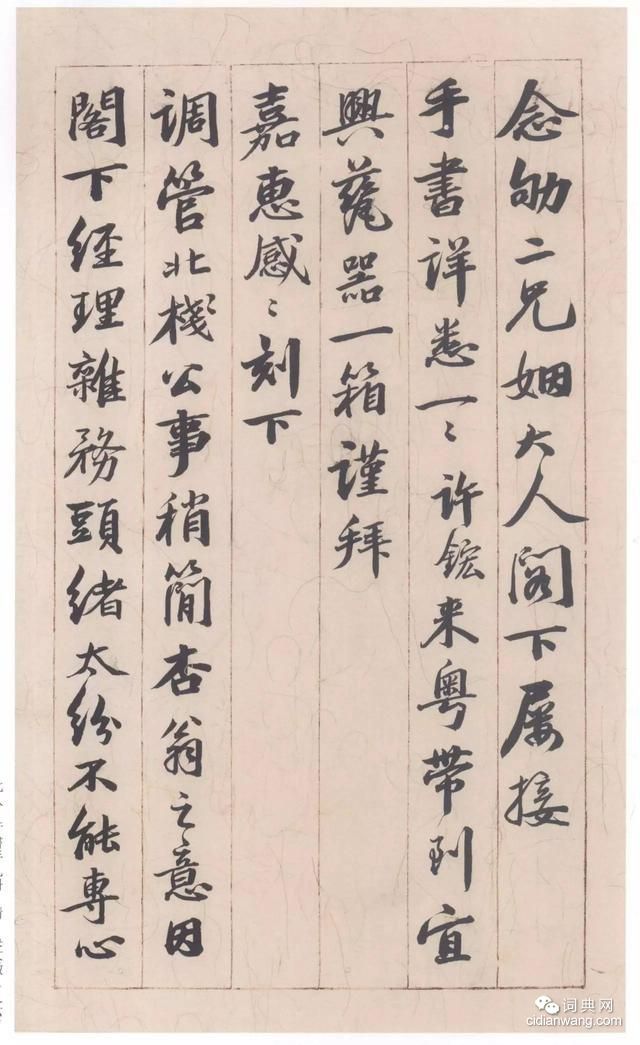 念劬二兄姻大人阁下屡接
手書详悉一〻许鋐来粤带到宜
興甆器一箱谨拜
嘉惠感〻刻下
调管北棧公事稍簡杏翁之意因
閣下经理雜務頭绪太纷不能專心
词典网
cidianwang.com